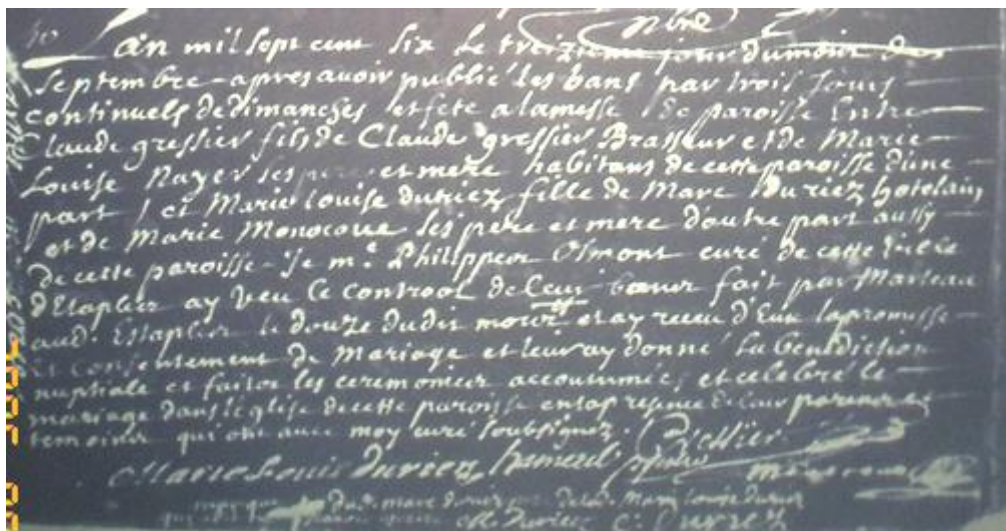 Lan mil sept cent six le treizieme jour du mois de
septembre apres avoir publié les bans par trois jours
continuels de dimanches et fete a la messe de paroisse Entre
Claude gressier fils de Claude gressier Brasseur et de Marie
Louise Nayer ses pere et mere habitans de cette paroisse dune
part et Marie Louise duriez fille de Marc Duriez hotelain
et de Marie Monocoue ses pere et mere d'autre part aussy
de cette paroisse Je me. Philippes Osmont curé de cette ville
d'Etaples ay veu le controol de leur fait par Marteau
aud. Estaples le douze dudit mois et ay receu d'Eux la promesse
et Consentement de Mariage et leur ay donné la benediction
nuptiale et faites les ceremonies accoutumées et celebré le
mariage dans l'eglise de cette paroisse en la presence de leur parens et
temoins qui ont avec moy curé soubsignez.
Marie Louis Duriez
marc duriez Marie Louise Duriez
M. Duriez C. Duriez